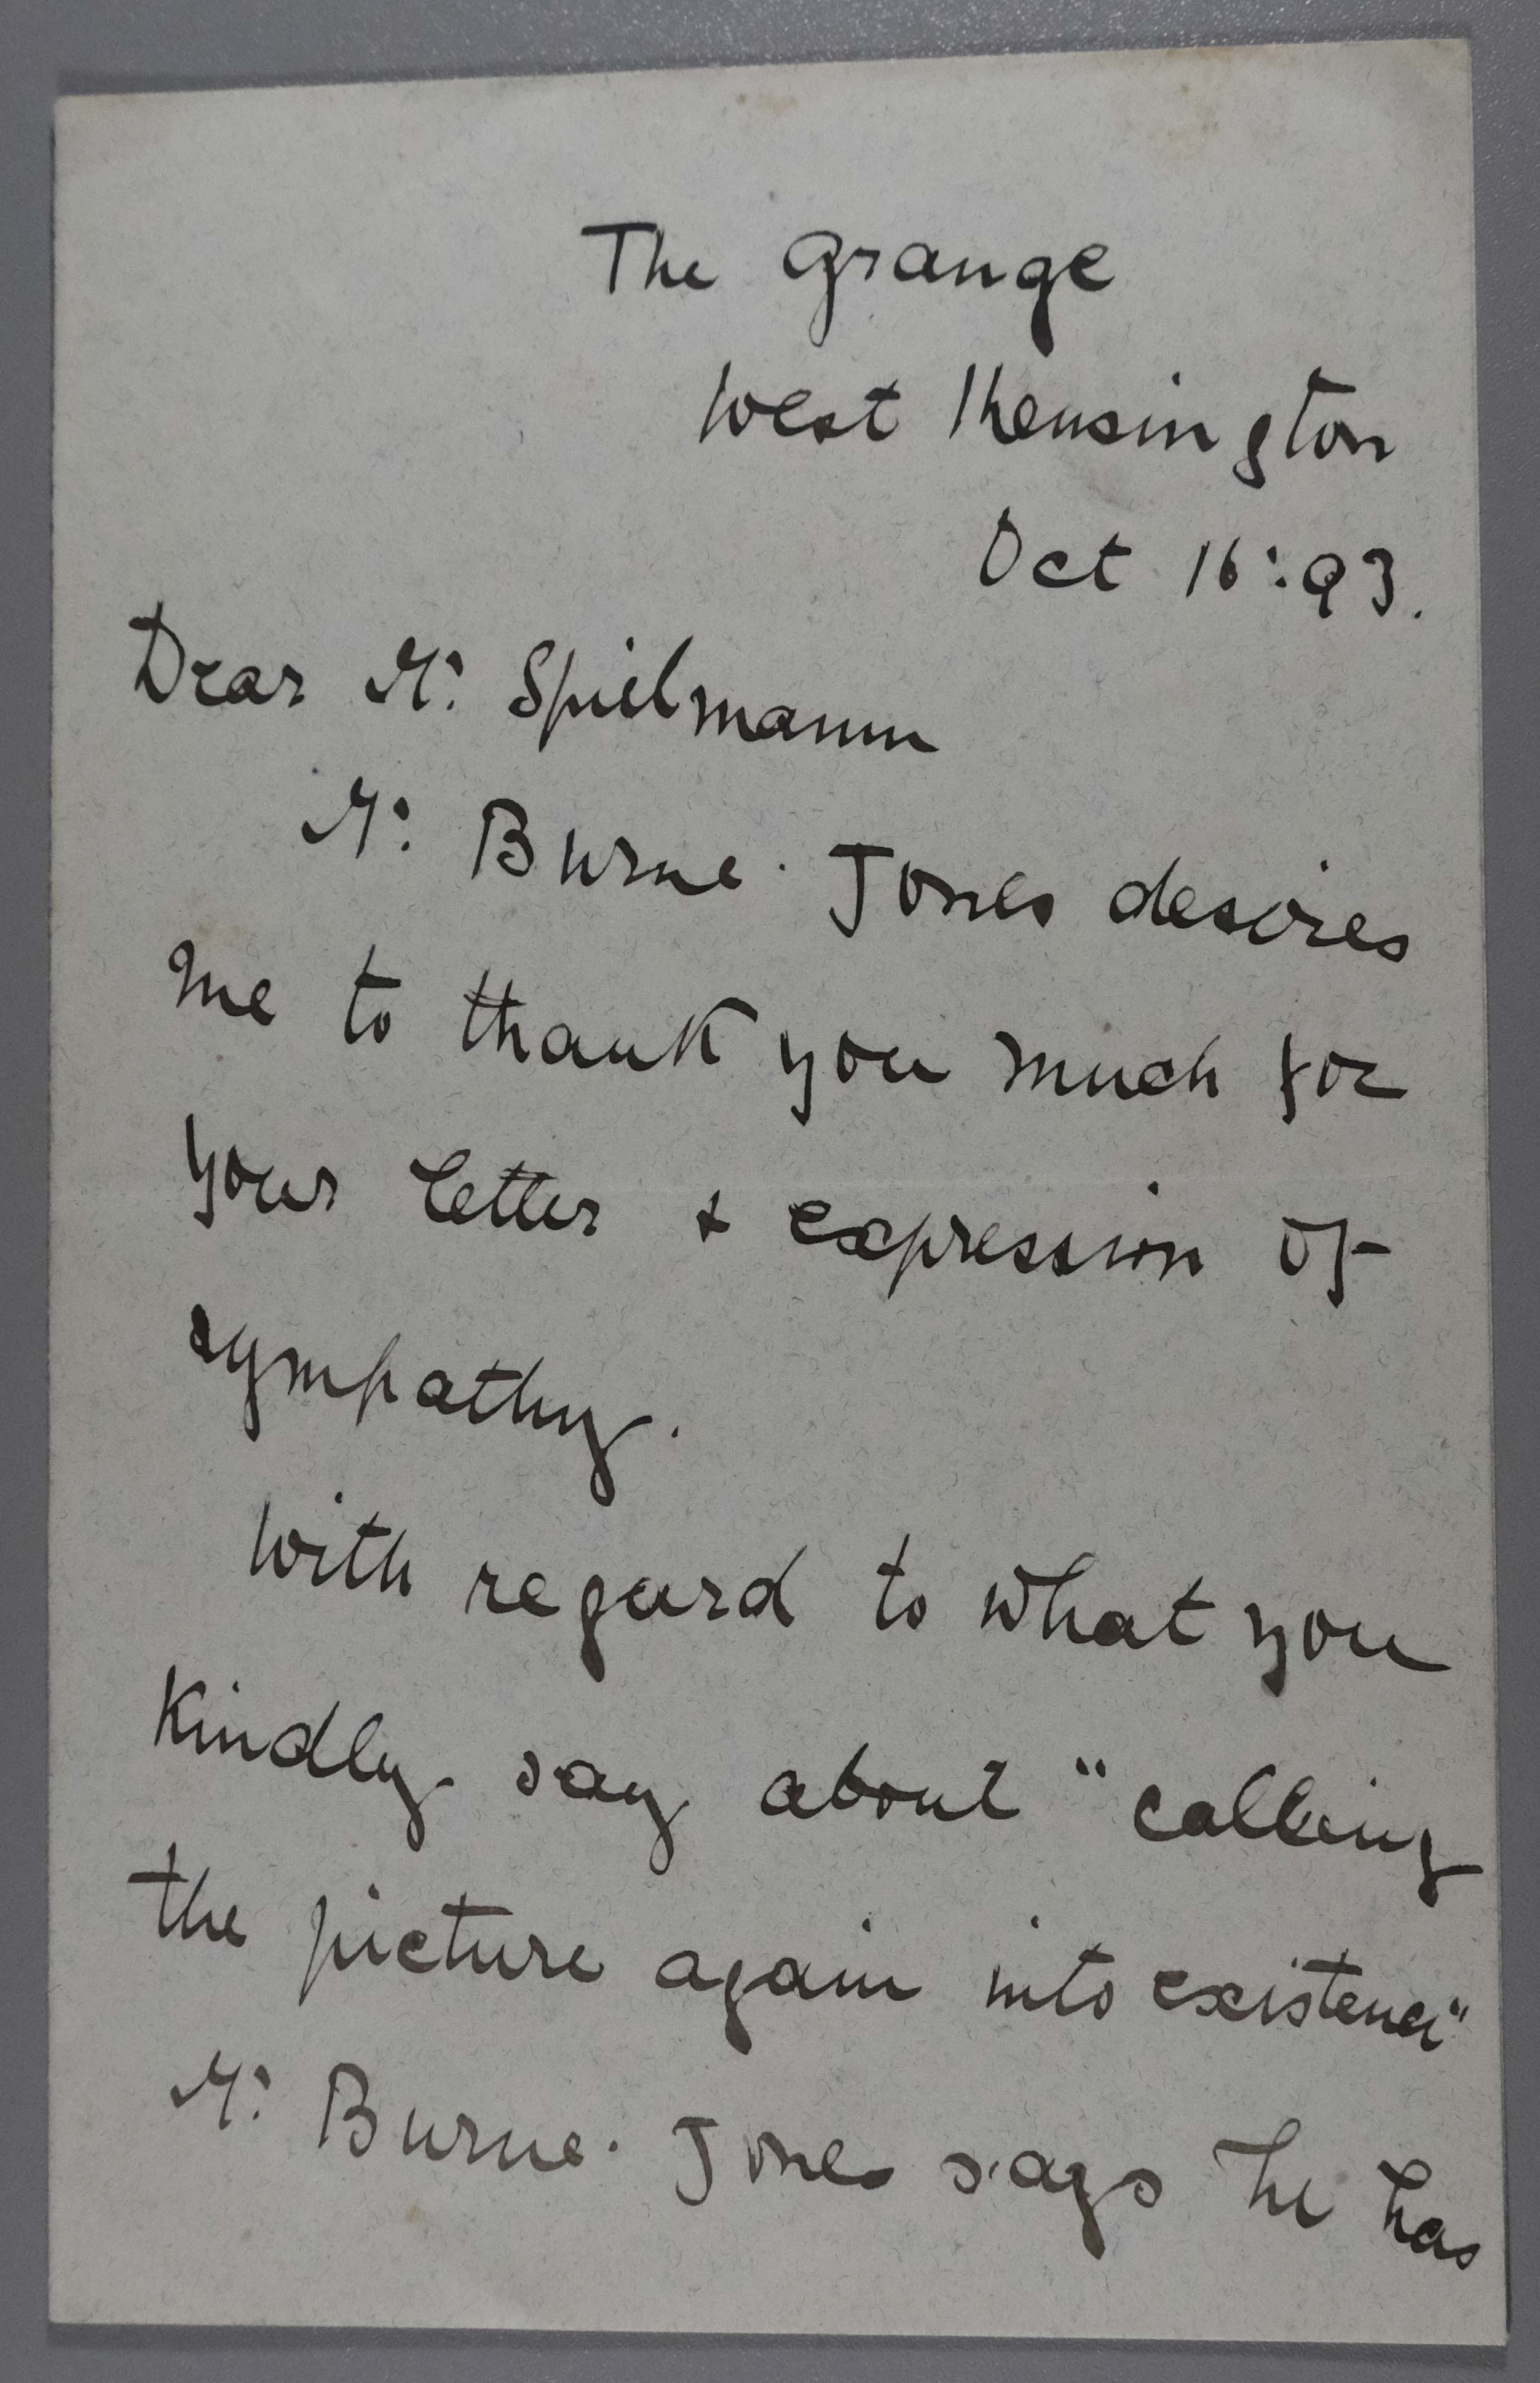 The Grange
West Kensington
Oct 16:93.
Dear Mr: Spielmann
Mr: Burne-Jones desires
me to thank you much for
your letter & expression of
sympathy.
With regard to what you
kindly say about "calling
the picture again into existence"
Mr: Burne-Jones says he has